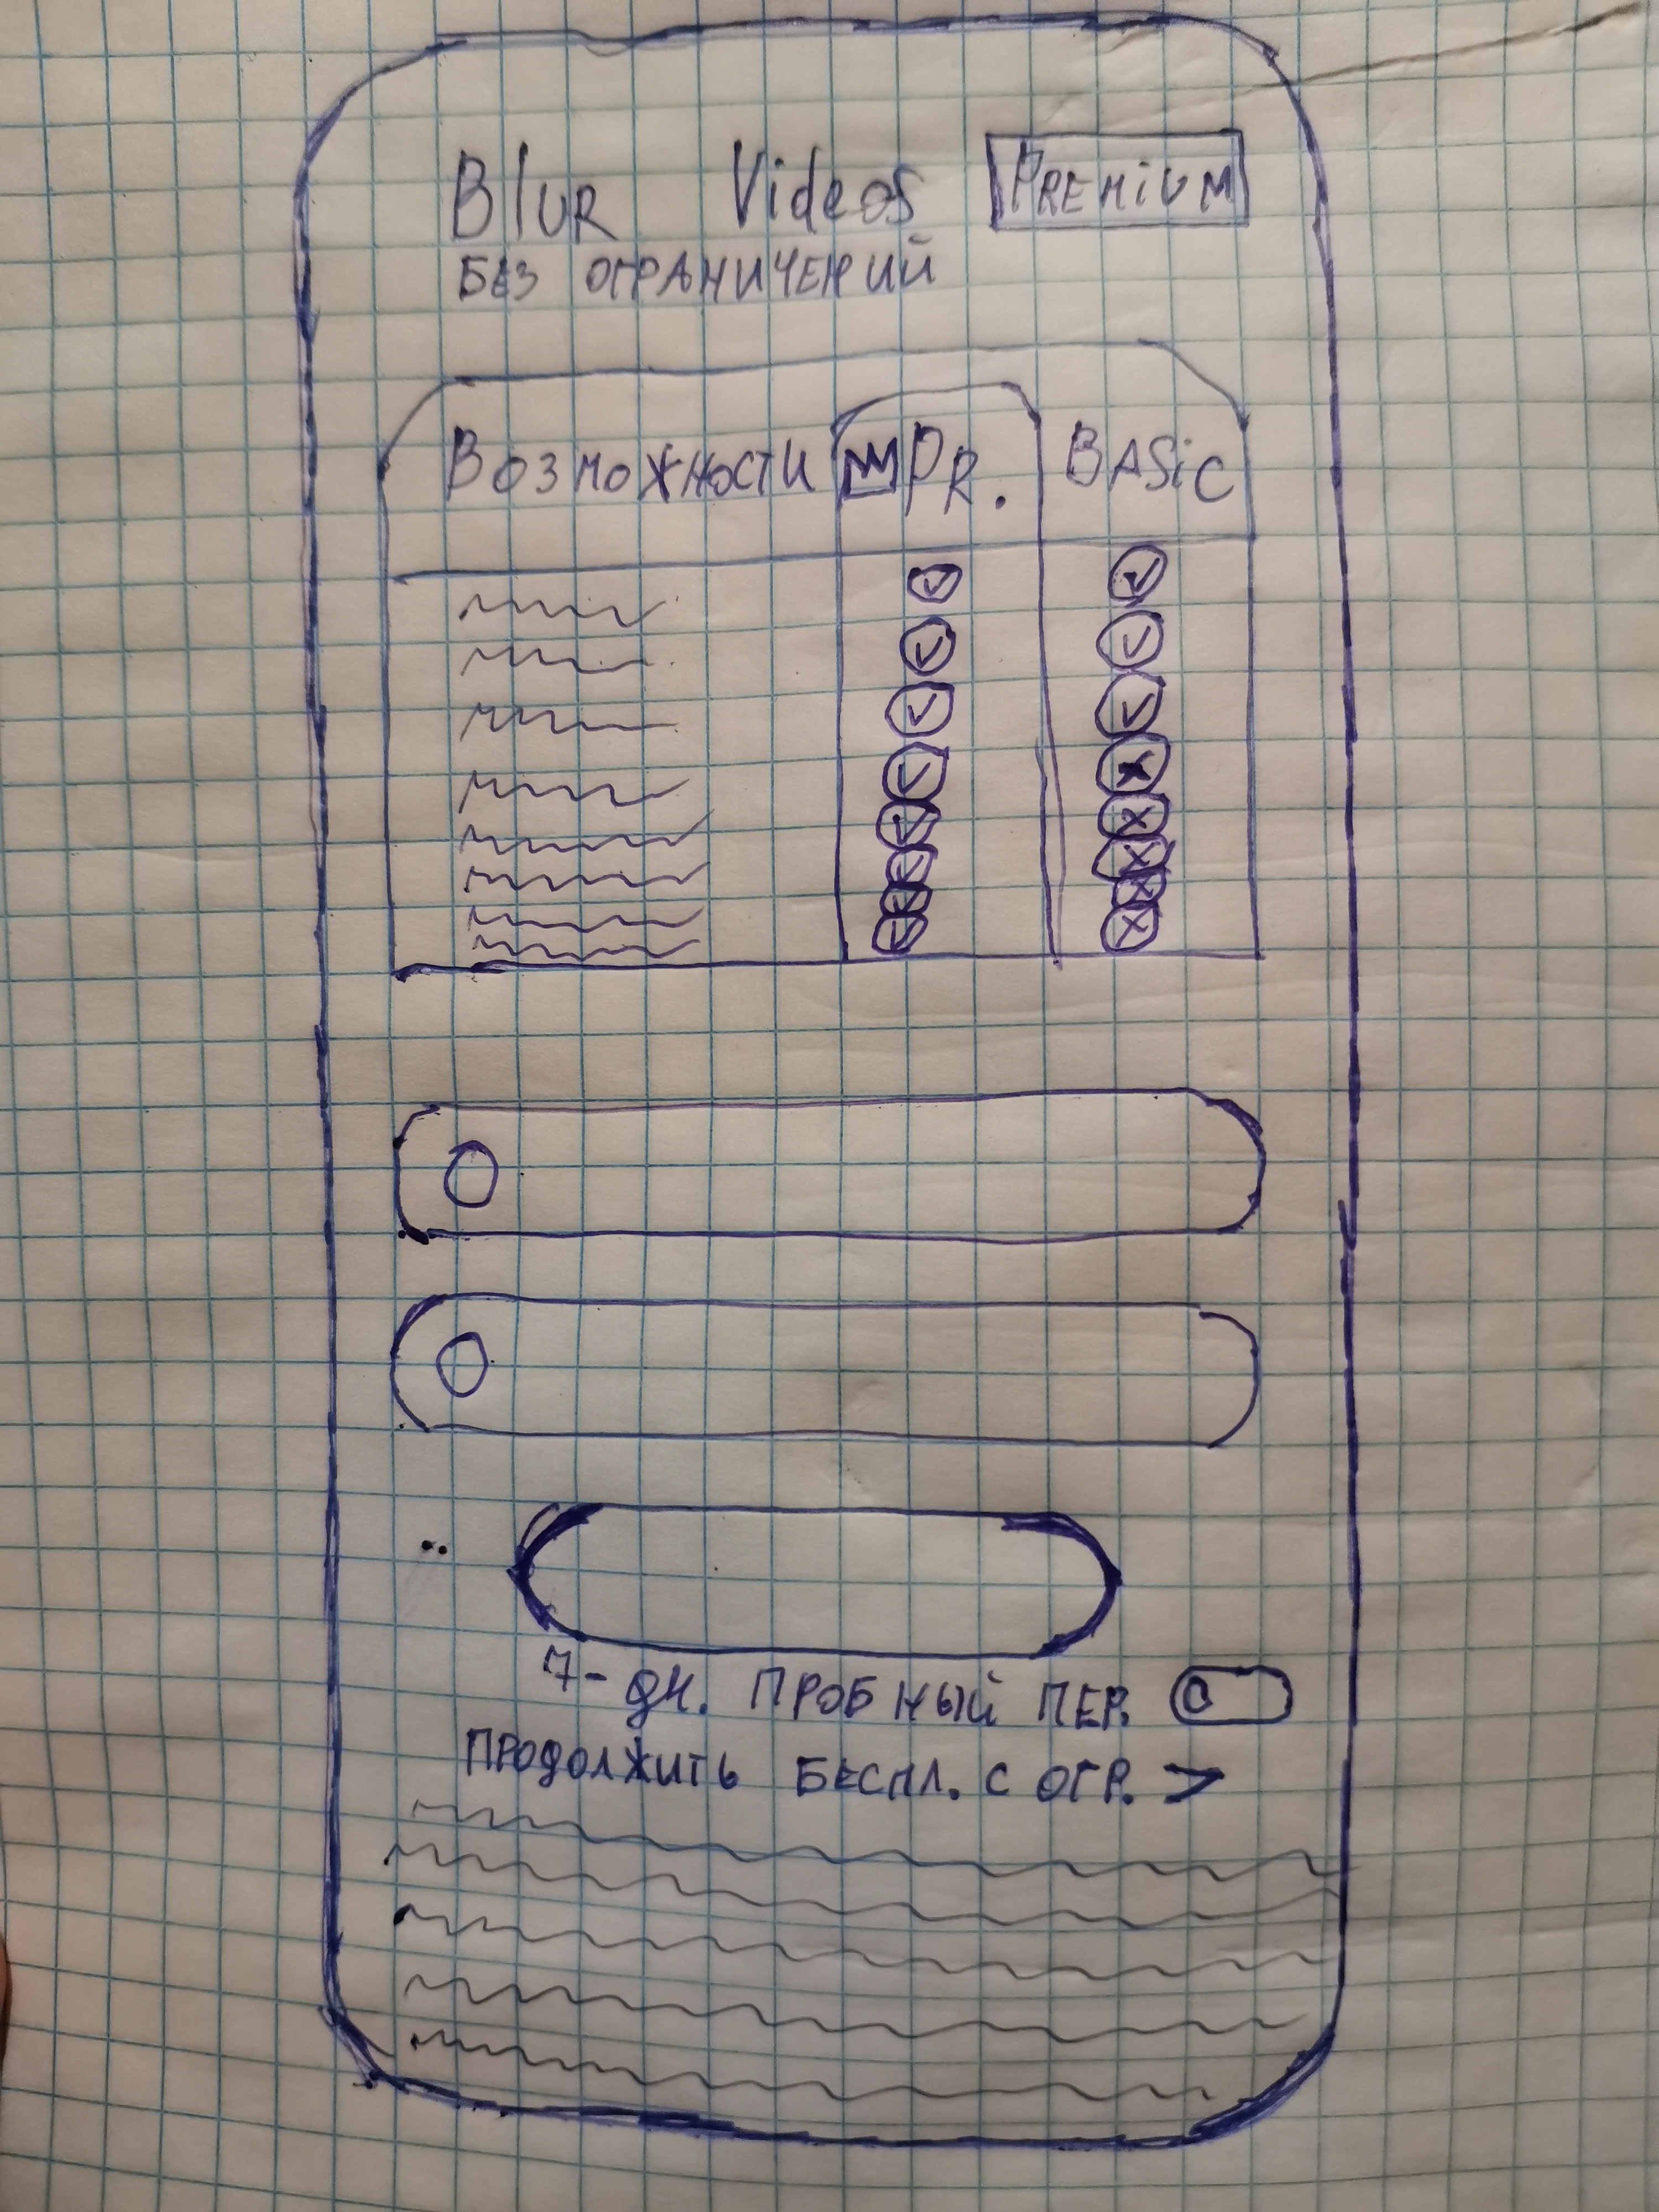 Blur Videos PREMiUM
БЕЗ ОГРАНИЧЕНИЙ
Возможности PR. BASiC
7-дн. ПРОБНЫЙ ПЕР.
ПРОДОЛЖИТЬ БЕСПЛ. С ОГР. >